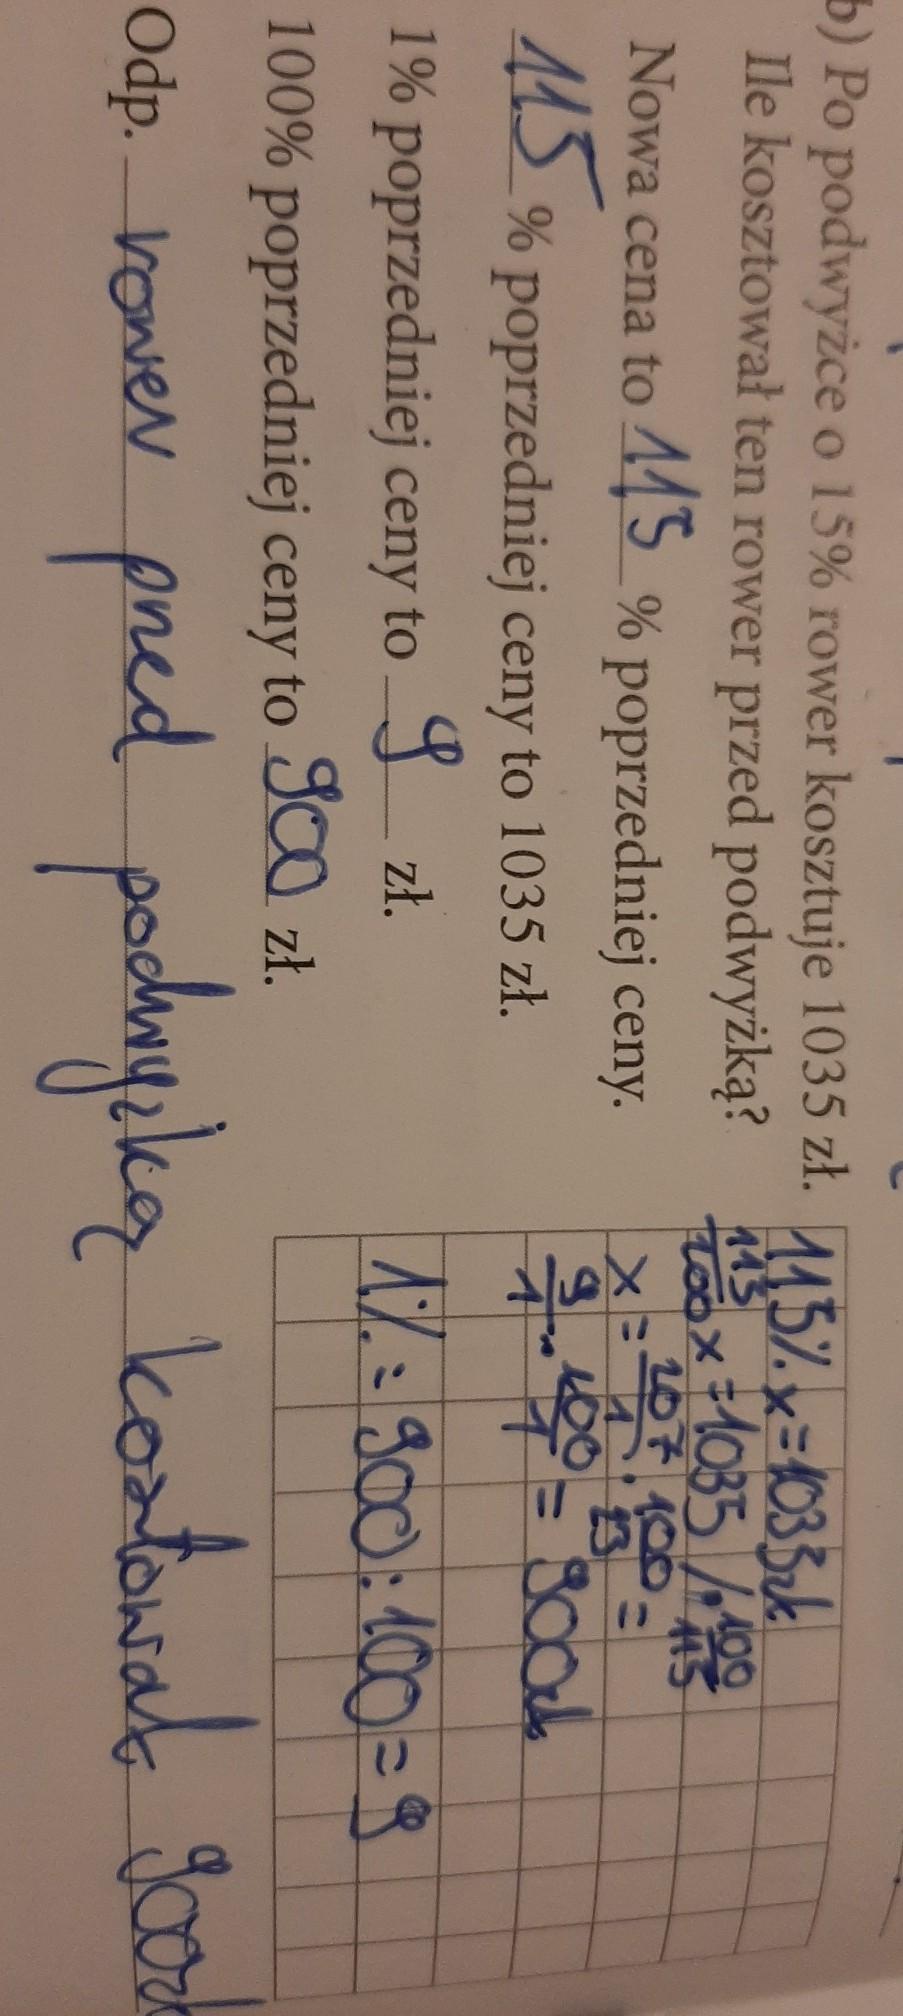 b) Po podwyżce o 15% rower kosztuje 1035 zł.
Ile kosztował ten rower przed podwyżką?
Nowa cena to 115 % poprzedniej ceny.
115 % poprzedniej ceny to 1035 zł.
1% poprzedniej ceny to 9 zł.
100% poprzedniej ceny to 900 zł.
Odp. rower przed podwyżką kosztował 900zł
115% x = 1035zł
115/100 x = 1035 /· 100/115
x = 207/1 · 100/23 =
9/1 · 100/1 = 900zł
1% = 900 : 100 = 9